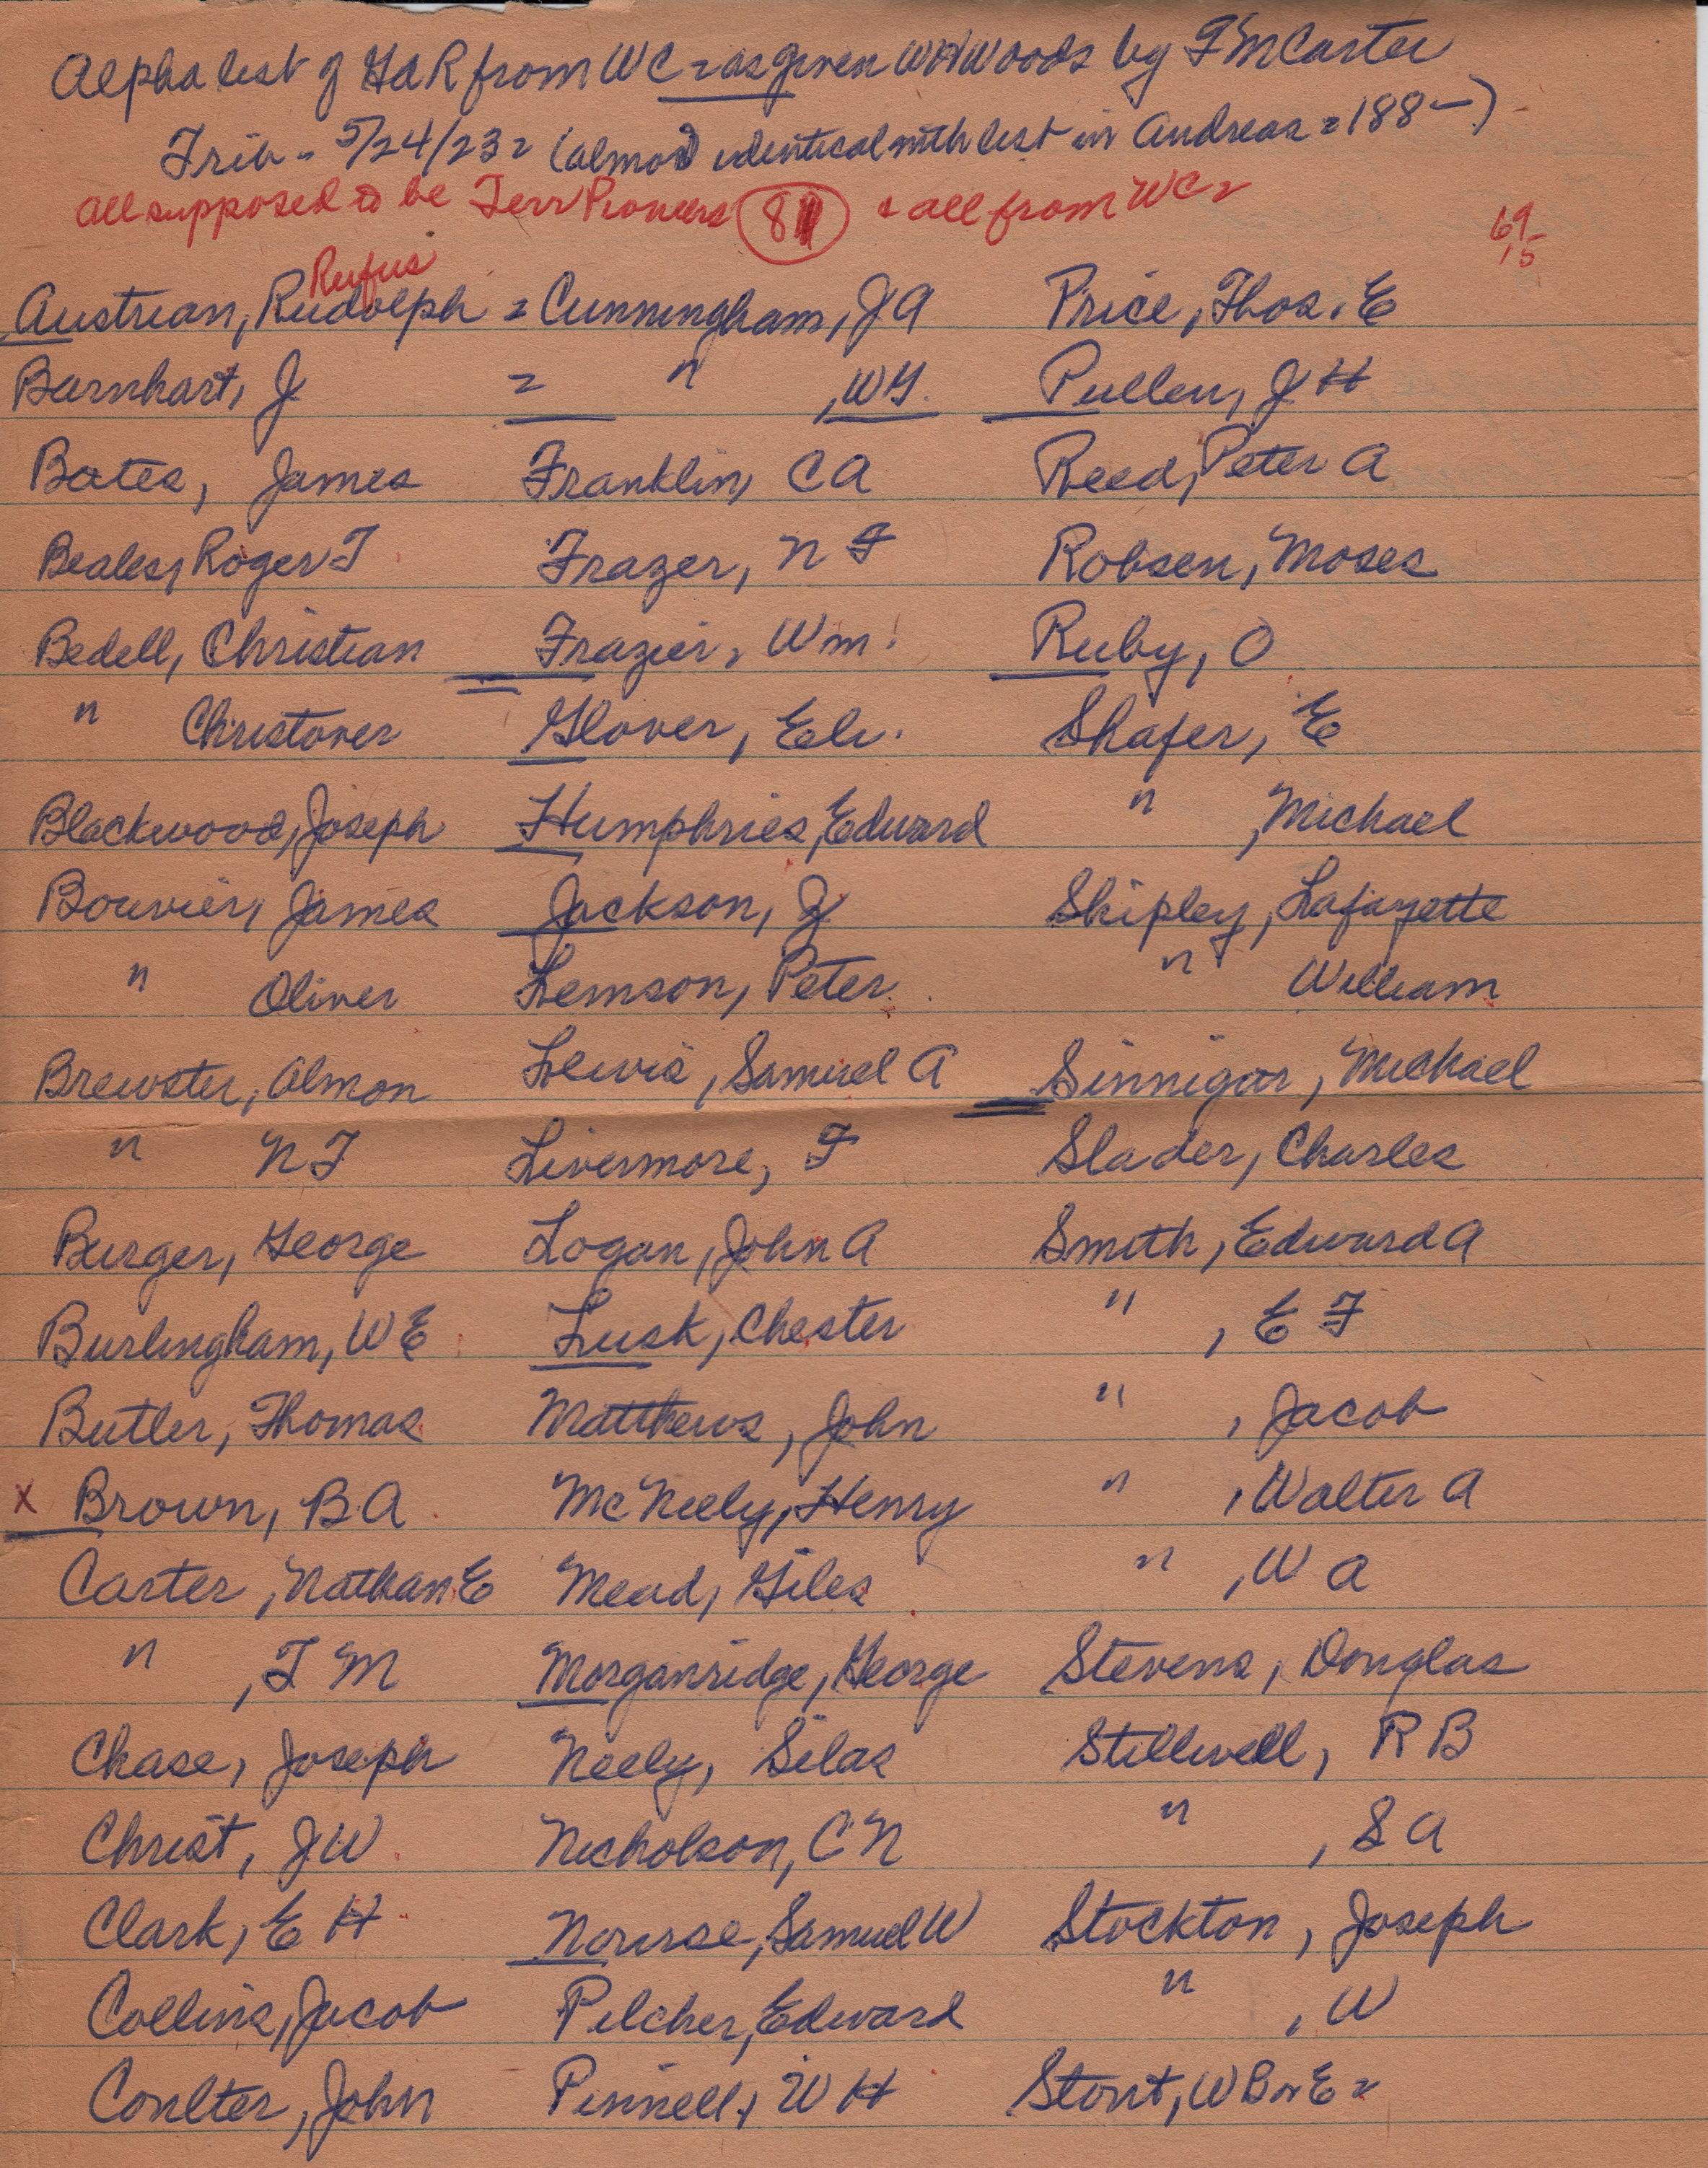 Alpha list of GAR from WC = as given WHWoods by F M Carter
Trib - 5/24/23 = (almost identical with list in Andreas = 188-)
all supposed to be Terr Pioneers 81 & all from WC =
69
15
Rufus
Austrian, Rudolph = Cunningham, J A Price, Thos. E
Barnhart, J = " , W G. Pullen, J H
Bates, James Franklin, C A Reed, Peter A
Beales, Roger T Frazer, N F Robsen, Moses
Bedell, Christian Frazier, Wm. Ruby, O
" Christover Glover, Eli. Shafer, E
Blackwood, Joseph Humphries, Edward " , Michael
Bouvier, James Jackson, J Shipley, Lafayette
" Oliver Lemson, Peter " William
Brewster, Almon Lewis, Samuel A Sinnigar, Michael
" N F Livermore, F Slader, Charles
Burger, George Logan, John A Smith, Edward A
Burlingham, W E Lusk, Chester " , E F
Butler, Thomas Matthews, John " , Jacob
x Brown, B A Mc Neely, Henry " , Walter A
Carter, Nathan E Mead, Giles " , W A
" , F M Morganridge, George Stevens, Douglas
Chase, Joseph Neely, Silas Stillwell, R B
Christ, J W Nicholson, C N " , S A
Clark, E H Nourse, Samuel W Stockton, Joseph
Collins, Jacob Pilcher, Edward " , W
Coulter, John Pinnell, W H Stout, W B or E =